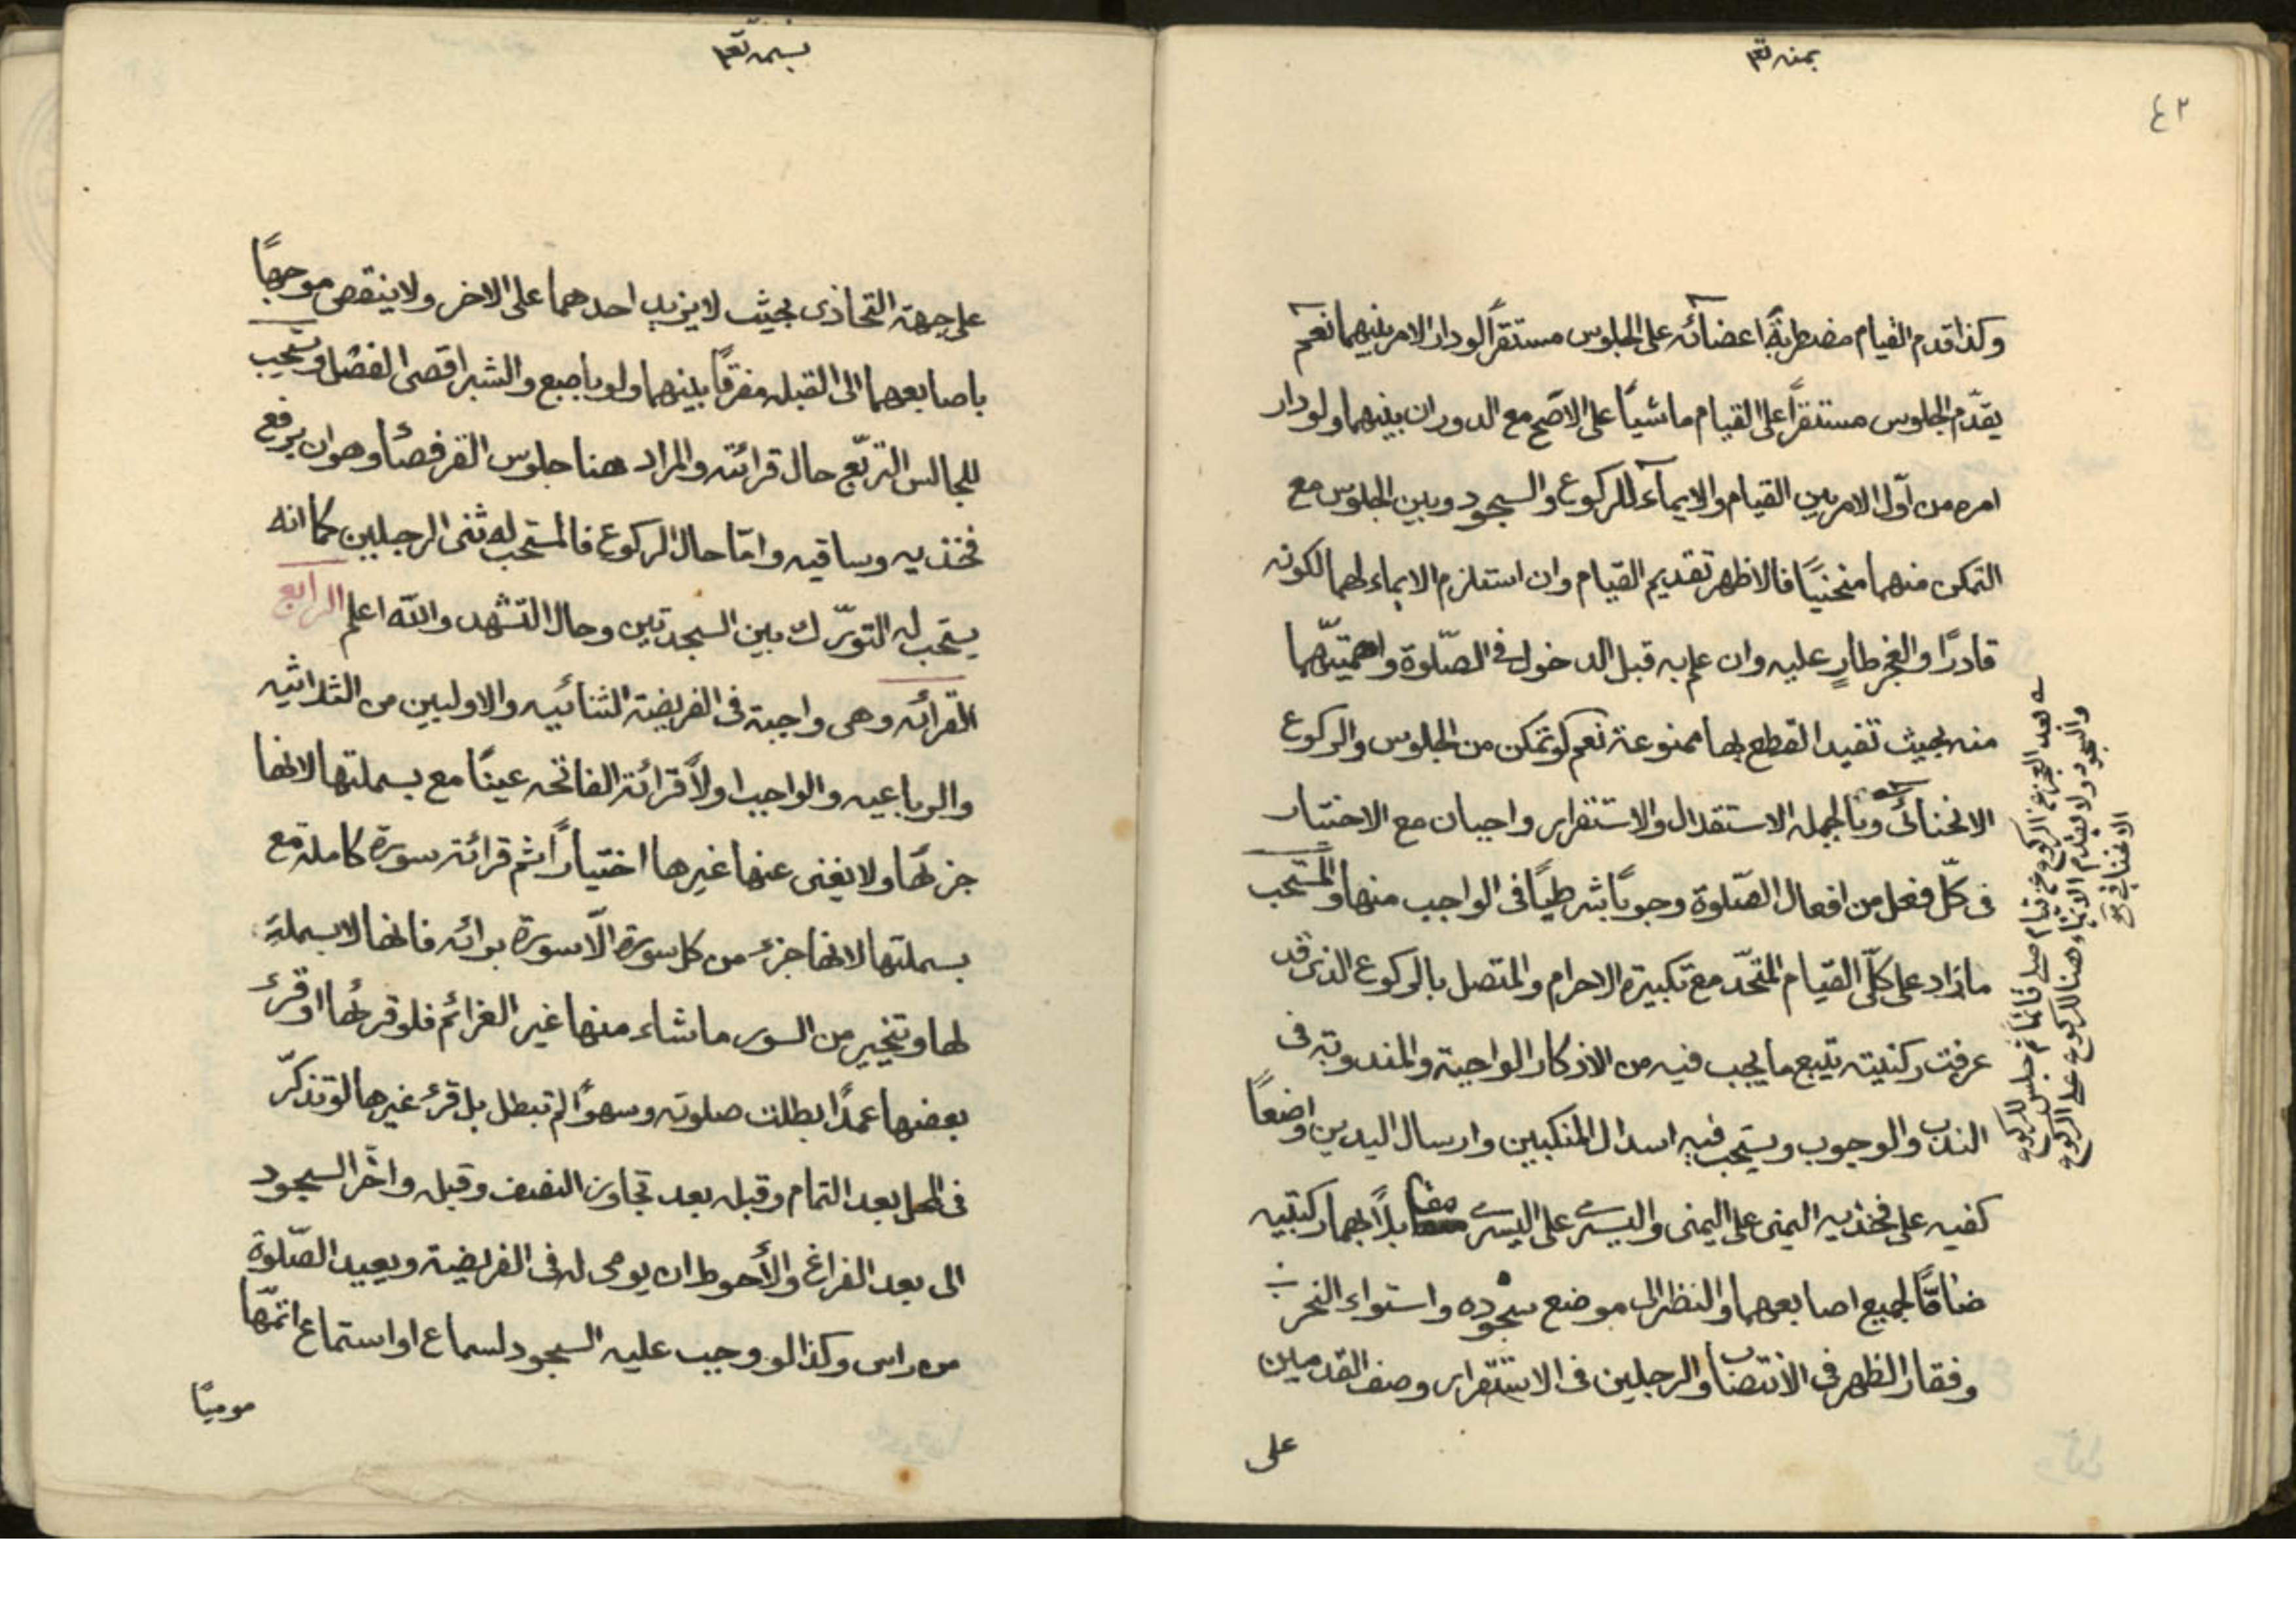 بمنه تعم
٤٢
وكذا قدم القيام مضطربة اعضائه على الجلوس مستقراً لو دار الامر بينهما نعم
يقدّم الجلوس مستقراً على القيام ماشياً على الاصّح مع الدوران بينهما ولو دار
امره من اوّل الامر بين القيام والايمآء للركوع والسجود وبين الجلوس مع
التمكن منهما منحنياً فالاظهر تقديم القيام وان استلزم الايماء لهما لكونه
قادرًا والعجز طارٍ عليه وان علم به قبل الدخول فى الصّلوة واهميّتهما
منه بحيث تفيد القطع بها ممنوعة نعم لو تمكن من الجلوس والركوع
الانحنائى وبالجمله الاستقلال والاستقرار واجبان مع الاختيار
فى كلّ فعل من افعال الصّلوة وجوبًا شرطيًا فى الواجب منها والمستحب
مازاد على كلّى القيام المتحّد مع تكبيرة الاحرام والمتصل بالركوع الذى قد
عرفت ركنيته يتبع ما يجب فيه من الاذكار الواجبة والمندوبة فى
الندب والوجوب ويستحب فيه اسدال المنكبين وارسال اليدين واضعاً
كفيه على فخذيه اليمنى على اليمنى واليسرى على اليسرى مقابلاً بهما ركبتيه
ضامًّا لجميع اصابعهما والنظر الى موضع سجوده واستواء النحر
وفقار الظهر فى الانتصاب والرجلين فى الاستقرار وصف القدمين
على
بعد العجز عن الركوع عن قيام صلى قائما ثم جلس للركوع
والسجود ولا يقدم الايماء هنا للركوع على الركوع
الانحنائى
بسمه تعم
على جهة التحاذى بحيث لا يزيد احدهما على الاخر ولا ينقص موجهاً
باصابعهما الى القبله مفرقًا بينهما ولو باصبع والشبر اقصى الفضل ويستحب
للجالس التربّع حال قرائته والمراد هنا جلوس القرفصاً وهو ان يرفع
فخذيه وساقيه وامّا حال الركوع فالمستحب له ثنى الرجلين كما انه
يستحب له التورّك بين السجدتين وحال التشهد والله اعلم الرابع
القرائه وهى واجبة فى الفريضة الثنائيه والاوليين من الثلاثيه
والرباعيه والواجب اولاً قرائة الفاتحه عينًا مع بسملتها لانها
جزئها ولا يغنى عنها غيرها اختياراً ثم قرائة سورة كاملة مع
بسملتها لانها جزء من كل سورة الّا سورة برائه فانها لا بسملة
لها ويتخير من السور ما شاء منها غير العزائم فلو قرئها او قرء
بعضها عمدًا بطلت صلوته وسهوًا لم تبطل بل قرء غيرها لو تذكّر
فى المحل بعد التمام وقبله بعد تجاوز النصف وقبله واخّر السجود
الى بعد الفراغ والأحوط ان يومى له فى الفريضة ويعيد الصّلوة
من راس وكذا لو وجب عليه السجود لسماع او استماع اتمّها
موميًا